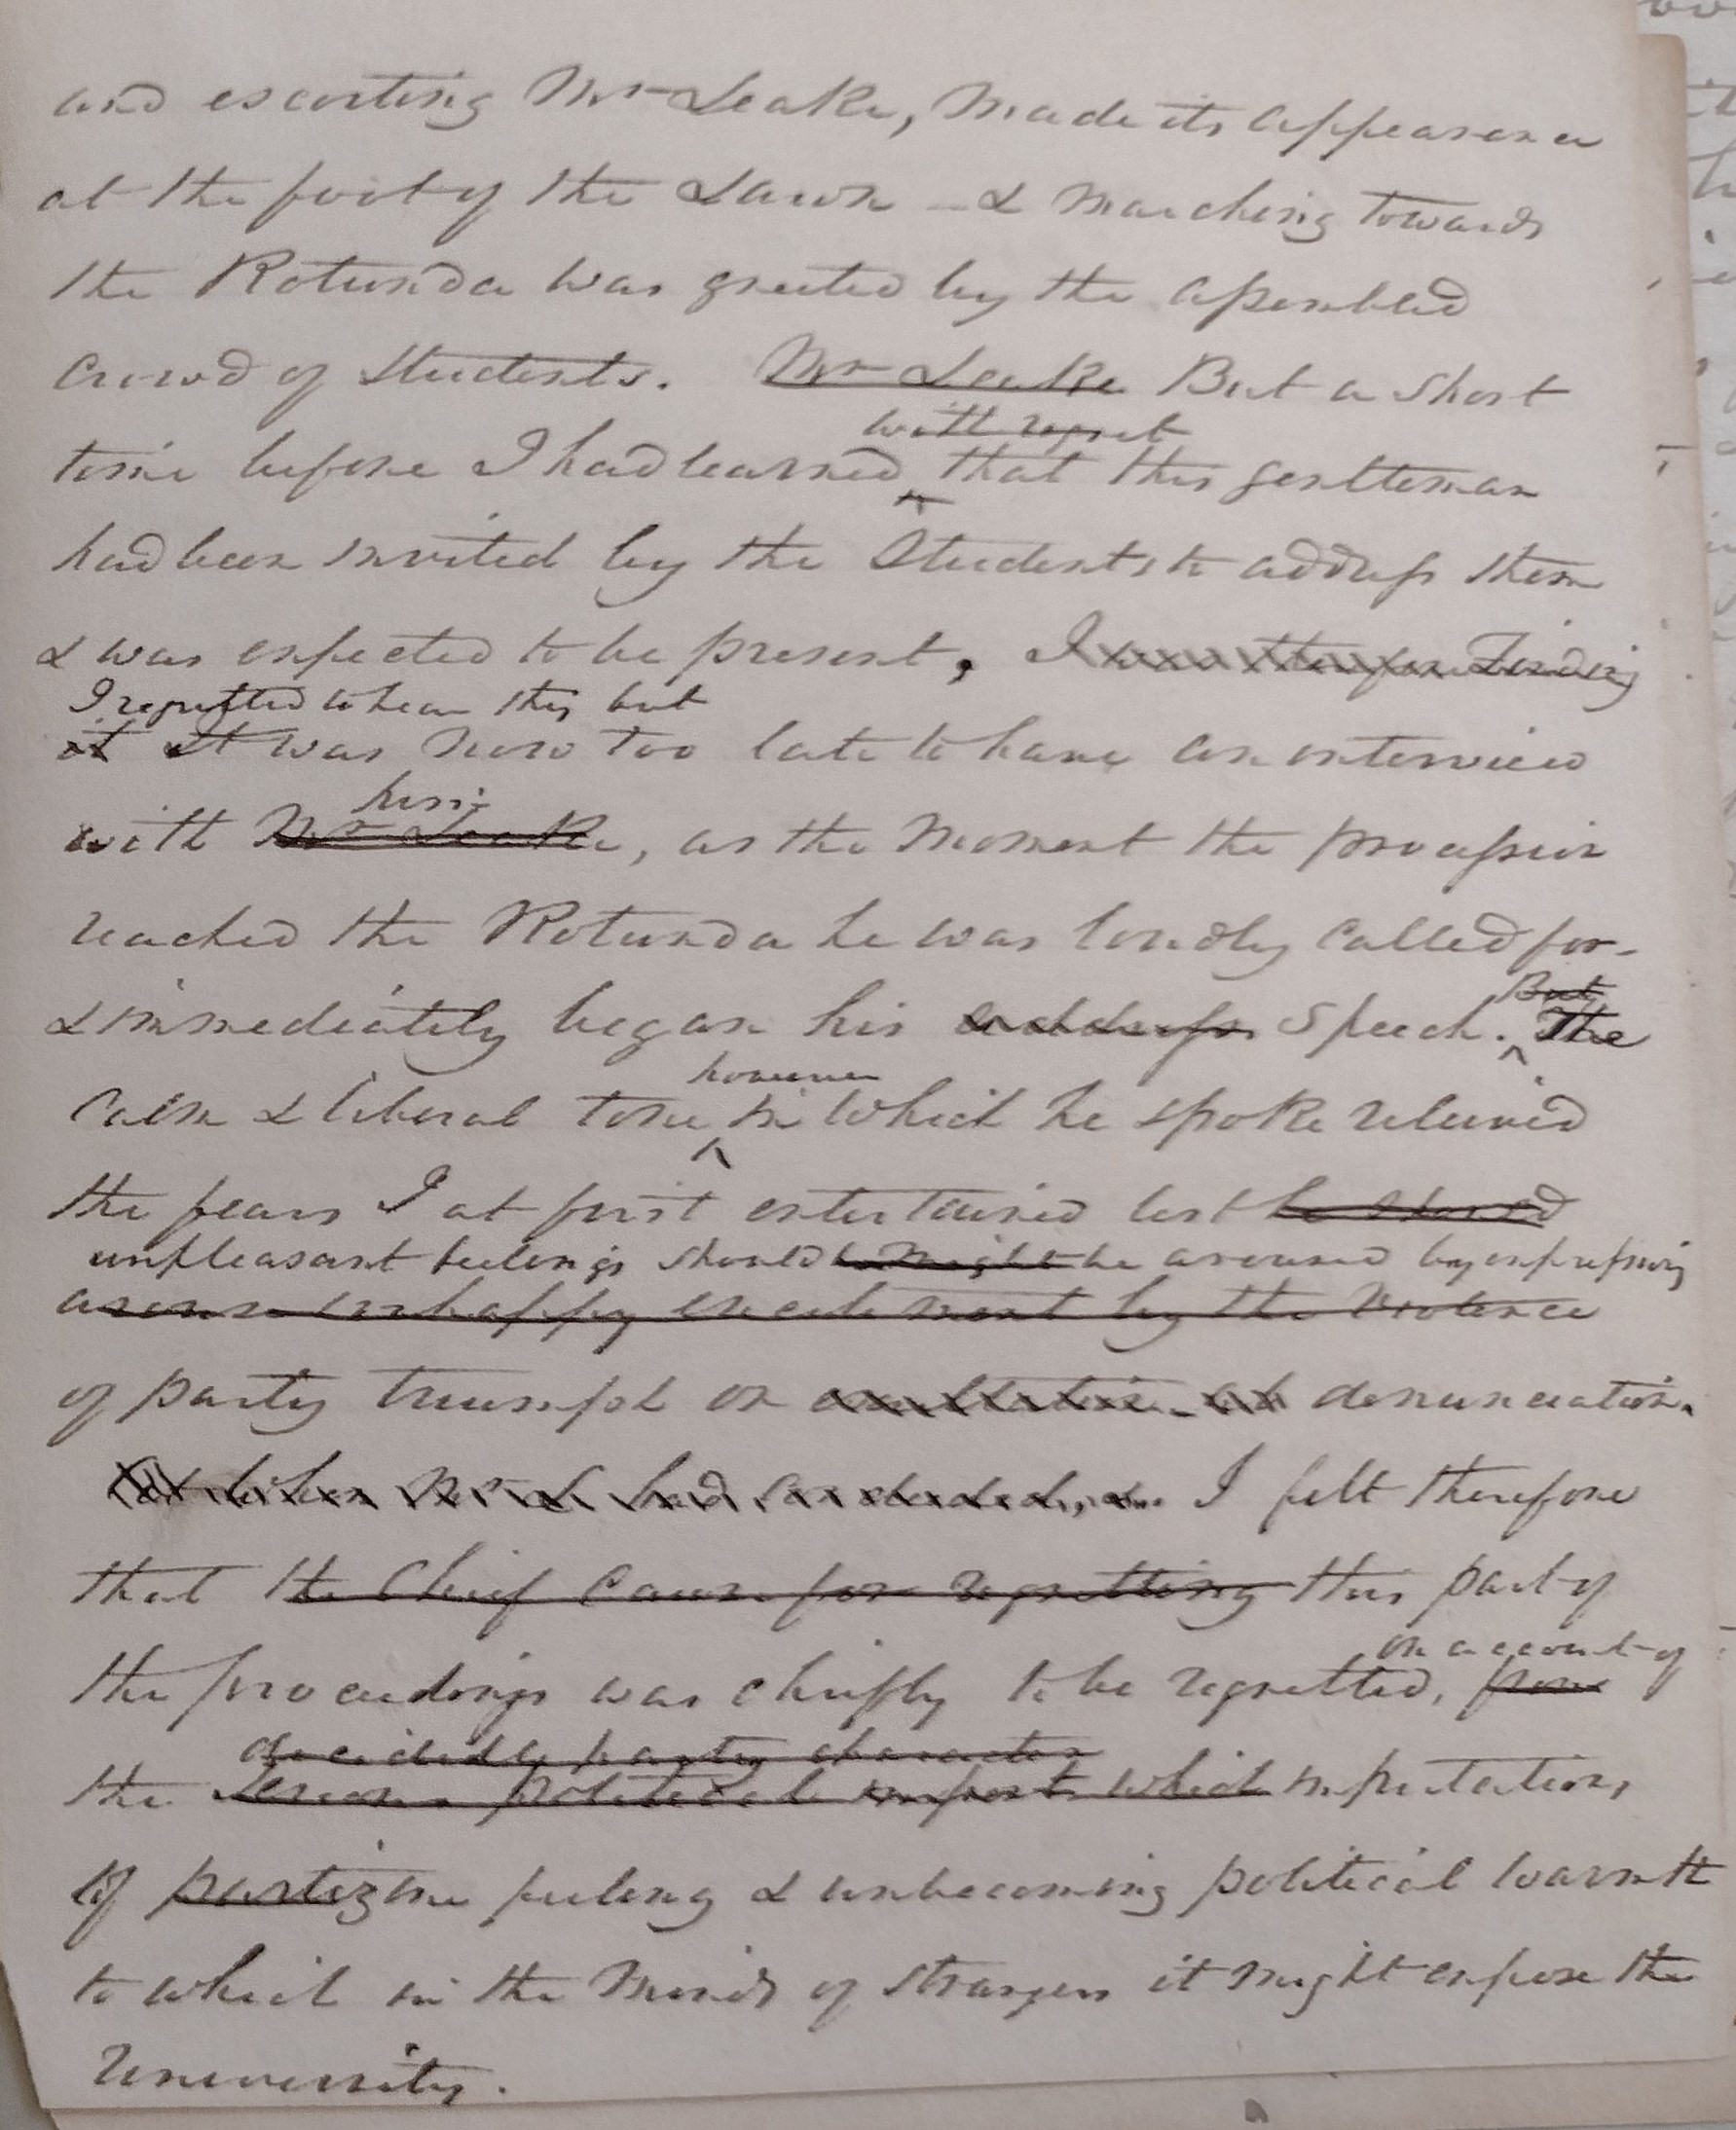 and escorting Mr Leake, made its appearance
at the foot of the Lawn - & marching towards
the Rotunda was greeted by the assembled
crowd of Students. Mr Leake But a short
with regret
time before I had learned that this gentleman
had been invited by the Students to address them
& was expected to be present, I
I regretted to hear this but
it It was now too late to have an interview
him
with Mr Leake, as the moment the procession
reached the Rotunda he was loudly called for -
But
& immediately began his address speech. The
however
calm & liberal tone in which he spoke relieved
the fears I at first entertained lest he should
unpleasant feelings should be aroused by expressions
arouse unhappy excitement by the violence
of party triumph or denunciation.
But when Mr L had concluded, I felt therefore
that the chief cause for regretting this part of
on account of
the proceedings was chiefly to be regretted, from
decidedly party character
the serious political import which imputation,
of partizan feeling & unbecoming political warmth
to which in the minds of strangers it might expose the
University.